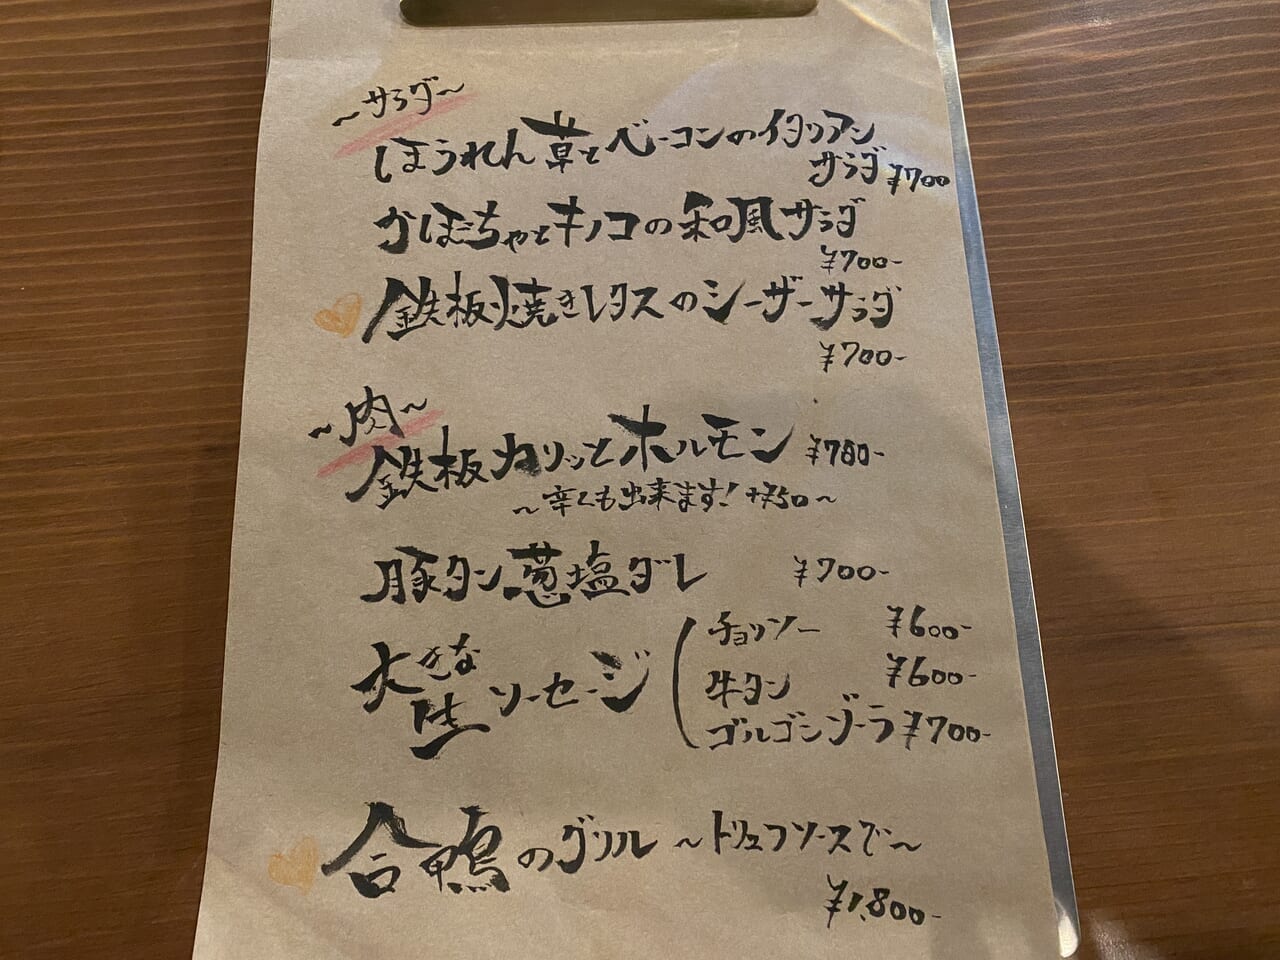 ～サラダ～
ほうれん草とベーコンのイタリアン
サラダ ¥700
かぼちゃとキノコの和風サラダ
¥700-
鉄板焼きレタスのシーザーサラダ
¥700-
～肉～
鉄板カリッとホルモン ¥780-
～辛くも出来ます! +¥50～
豚タン葱塩ダレ ¥700-
大きな生ソーセージ
チョリソー ¥600-
牛タン ¥600-
ゴルゴンゾーラ ¥700-
合鴨のグリル ～トリュフソースで～
¥1,800-